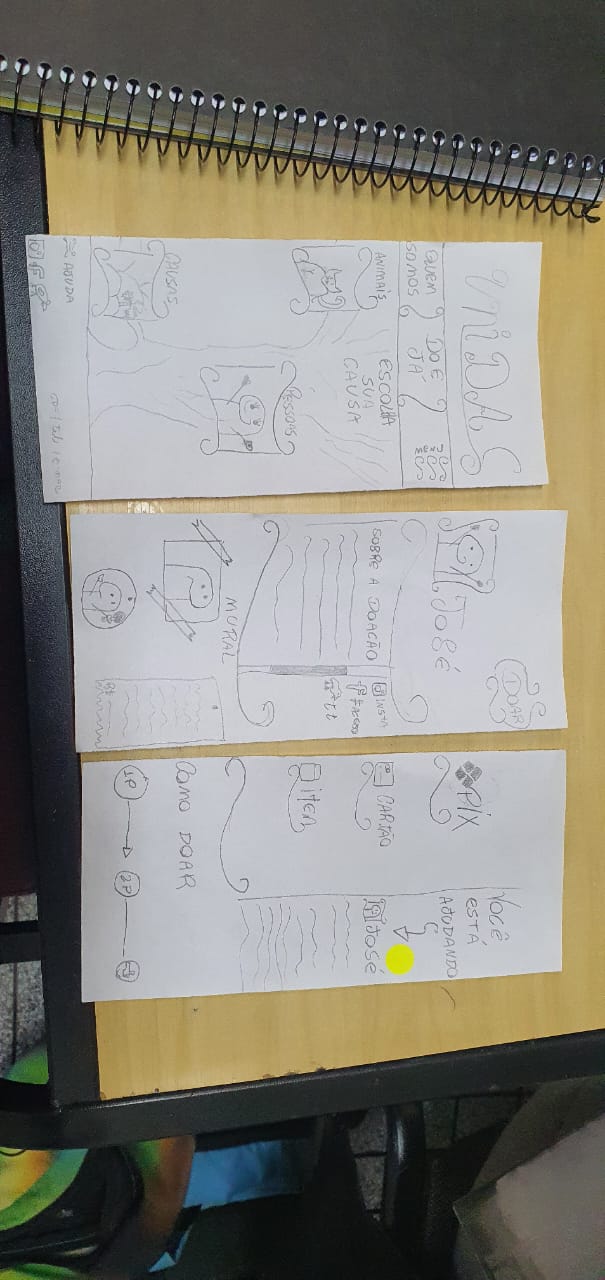 UNIDAS
QUEM
SOMOS
DOE
JÁ
MENU
ANIMAIS
ESCOLHA
SUA
CAUSA
PESSOAS
CAUSAS
AJUDA
DOAR
José
SOBRE A DOAÇÃO
INSTA
FACEBO
tt
MURAL
R$
PIX
CARTÃO
item
VOCÊ
ESTÁ
AJUDANDO
José
COMO DOAR
1P
2P